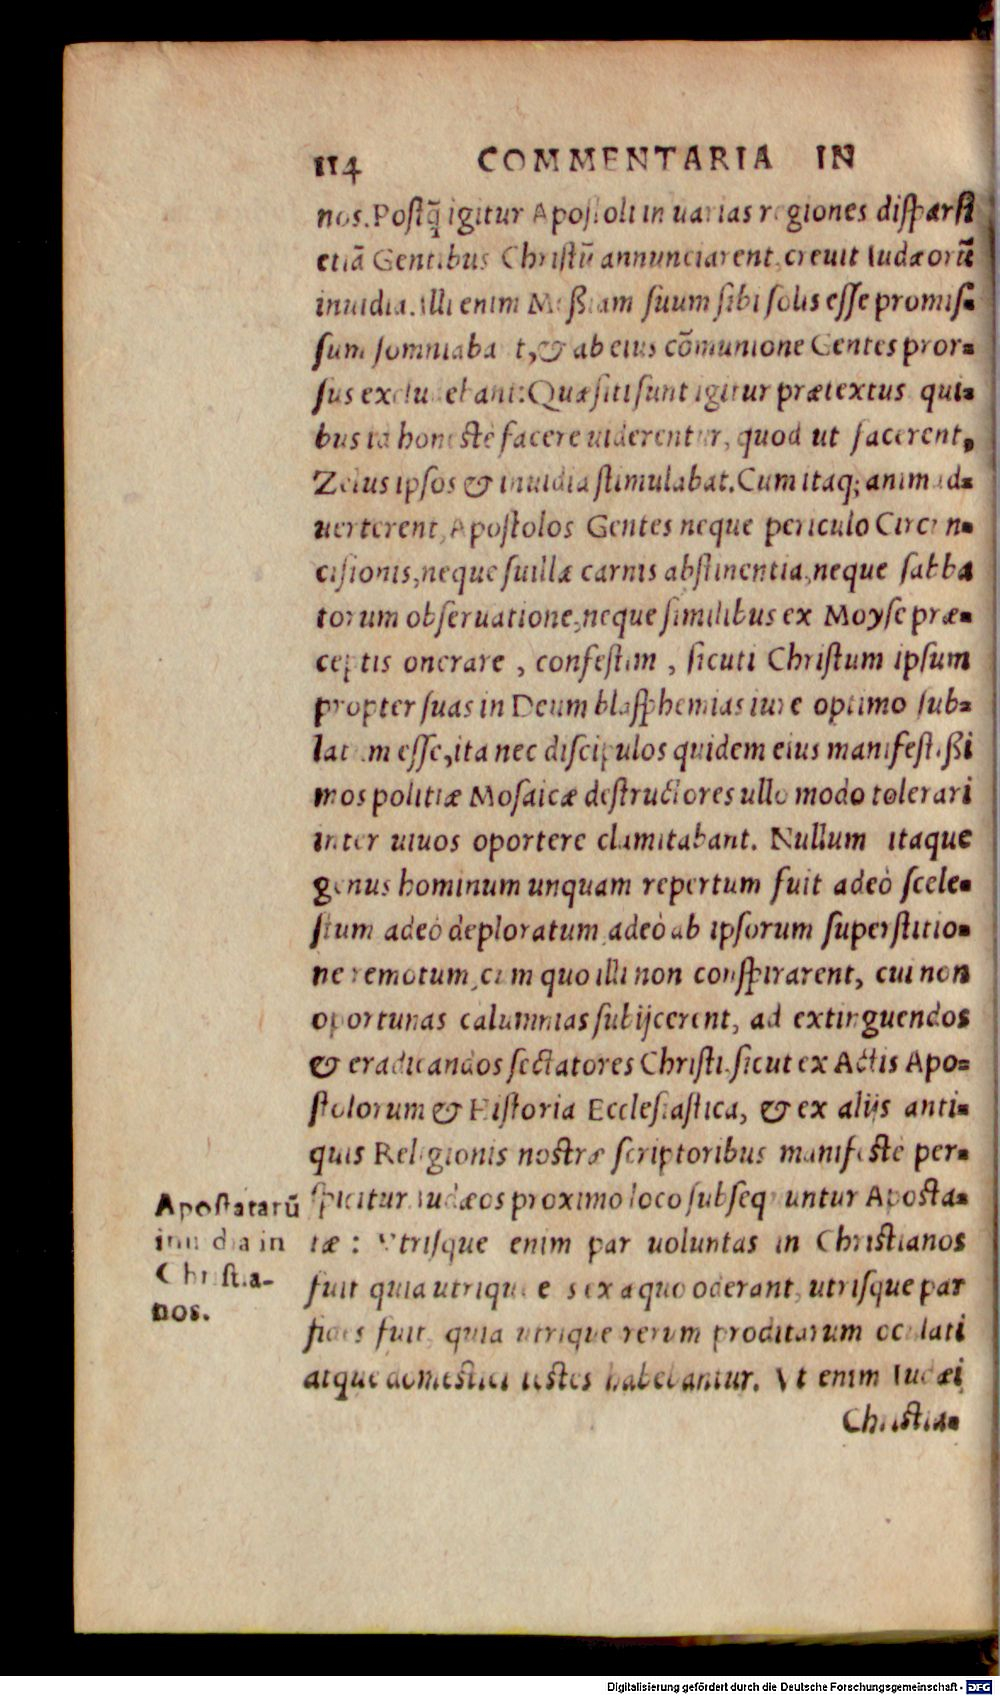 114 COMMENTARIA IN
nos. Postq̃ igitur Apostoli in uarias regiones dispersi
etiã Gentibus Christũ annunciarent, creuit Iudæorũ
inuidia. Illi enim Meßiam suum sibi solis esse promis-
sum somniabant, & ab eius cõmunione Gentes pror-
sus excludebant: Quæsiti sunt igitur prætextus qui-
bus id honestè facere uiderentur, quod ut facerent,
Zelus ipsos & inuidia stimulabat. Cum itaq; animad-
uerterent, Apostolos Gentes neque periculo Circun-
cisionis, neque suillæ carnis abstinentia, neque sabba
torum obseruatione, neque similibus ex Moyse præ-
ceptis onerare, confestim, sicuti Christum ipsum
propter suas in Deum blasphemias iure optimo sub-
latum esse, ita nec discipulos quidem eius manifestißi
mos politiæ Mosaicæ destructores ullo modo tolerari
inter uiuos oportere clamitabant. Nullum itaque
genus hominum unquam repertum fuit adeò scele-
stum adeò deploratum, adeò ab ipsorum superstitio-
ne remotum, cum quo illi non conspirarent, cui non
oportunas calumnias subijcerent, ad extinguendos
& eradicandos sectatores Christi. sicut ex Actis Apo-
stolorum & Historia Ecclesiastica, & ex alijs anti-
quis Religionis nostræ scriptoribus manifestè per-
spicitur. Iudæos proximo loco subsequuntur Aposta-
tæ: Vtrisque enim par uoluntas in Christianos
fuit quia utrique eos ex æquo oderant, utrisque par
fides fuit, quia utrique rerum proditarum oculati
atque domestici testes habebantur. Vt enim Iudæi
Christia-
Apostatarũ
inuidia in
Christia-
nos.
Digitalisierung gefördert durch die Deutsche Forschungsgemeinschaft - DFG